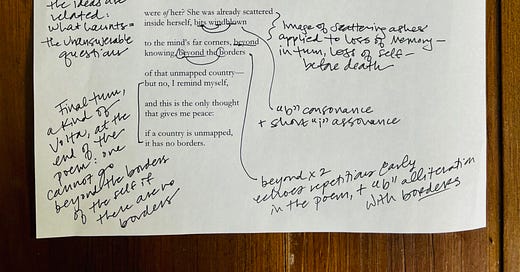 the ideas are
related:
what haunts =
the unanswerable
questions
were of her? She was already scattered
inside herself, bits windblown
to the mind's far corners, beyond
knowing, beyond the borders
of that unmapped country—
but no, I remind myself,
and this is the only thought
that gives me peace:
if a country is unmapped,
it has no borders.
Image of scattering ashes
applied to loss of memory—
in turn, loss of self—
before death
"b" consonance
+ short "i" assonance
Final turn,
a kind of
volta, at the
end of the
poem: one
cannot go
beyond the borders
of the self if
there are no
borders
beyond x 2
echoes repetitions early
in the poem, + "b" alliteration
with borders